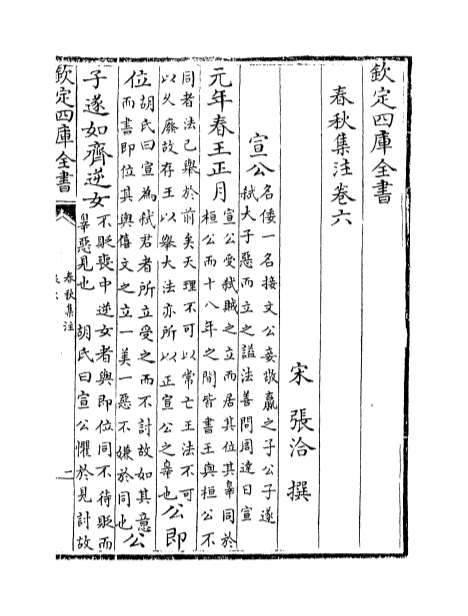 欽定四庫全書
春秋集注卷六
宋 張洽 撰
宣公名倭一名接文公妾敬嬴之子公子遂
弑太子惡而立之諡法善問周達曰宣
元年春王正月宣公受弑賊之立而居其位其辠同於
桓公而十八年之間皆書王與桓公不
同者法已舉於前矣天理不可以常亡王法不可
以久廢故存王以舉大法亦所以正宣公之辠也公即
位胡氏曰宣為弑君者所立受之而不討故如其意
而書即位其與僖文之立一美一惡不嫌於同也公
子遂如齊逆女不貶喪中逆女者與即位同不待貶而
辠惡見也 胡氏曰宣公懼於見討故
欽定四庫全書
春秋集注
卷六
一